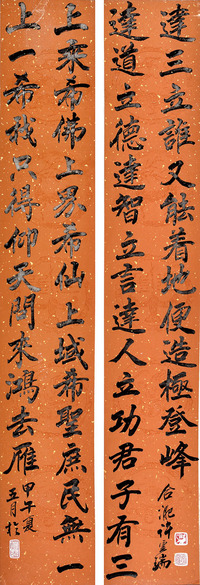 達道立德達智立言達人立功君子有三
達三立誰又能着地便造極登峰
上乘希佛上界希仙上域希聖庶民無一
上一希我只得仰天問來鴻去雁
甲午夏
五月於
合肥